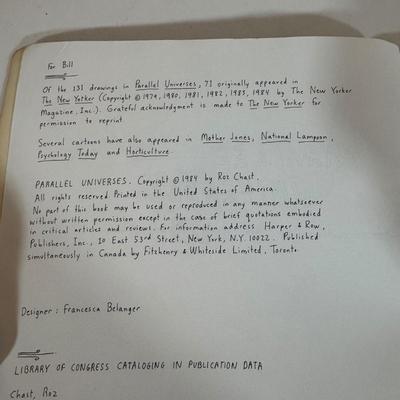 For Bill
Of the 131 drawings in Parallel Universes, 71 originally appeared in
The New Yorker (Copyright © 1979, 1980, 1981, 1982, 1983, 1984 by The New Yorker
Magazine, Inc.). Grateful acknowledgment is made to The New Yorker for
permission to reprint.
Several cartoons have also appeared in Mother Jones, National Lampoon,
Psychology Today and Horticulture.
PARALLEL UNIVERSES. Copyright © 1984 by Roz Chast.
All rights reserved. Printed in the United States of America.
No part of this book may be used or reproduced in any manner whatsoever
without written permission except in the case of brief quotations embodied
in critical articles and reviews. For information address Harper & Row,
Publishers, Inc., 10 East 53rd Street, New York, N.Y. 10022. Published
simultaneously in Canada by Fitzhenry & Whiteside Limited, Toronto.
Designer: Francesca Belanger
LIBRARY OF CONGRESS CATALOGING IN PUBLICATION DATA
Chast, Roz